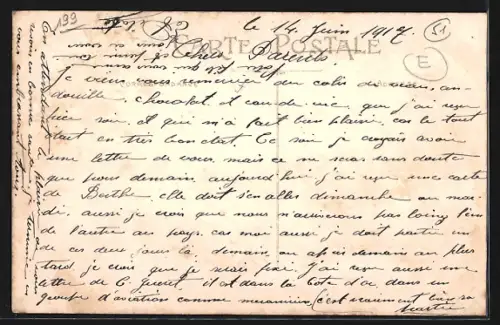 199
le 14 Juin 1917
51
E
CARTE POSTALE
Chers Parents
Je viens vous remercier du colis de eau, an-
douille, chocolat, et eau-de-vie, que j'ai reçu
hier soir, et qui m'a fait bien plaisir, car le tout
était en très bon état. Ce soir je croyais avoir
une lettre de vous, mais ce ne sera sans doute
que pour demain, aujourd'hui j'ai reçu une carte
de Berthe, elle doit s'en aller dimanche ou
aussi je crois que nous n'arriverons pas loin l'un
de l'autre au pays, car moi aussi je dois partir un
de ces deux jours là demain ou après demain au plus
tard, je crois que je serais fixé, j'ai reçu aussi une
lettre de il est dans la Côte d'or dans un
groupe d'aviation comme mécanicien, c'est vraiment bien sa
En attendant le plaisir de vous
revoir en bonne santé je termine en
vous embrassant tous